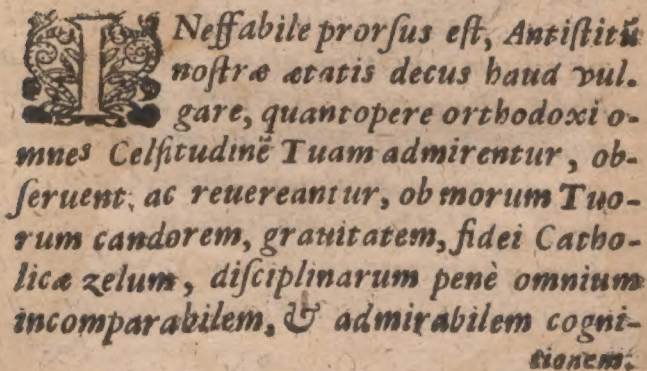 INeffabile prorſus eſt, Antiſtitũ
noſtræ ætatis decus haud vul-
gare, quantopere orthodoxi o-
mnes Celſitudinẽ Tuam admirentur, ob-
ſeruent, ac reuereantur, ob morum Tuo-
rum candorem, grauitatem, fidei Catho-
licæ zelum, diſciplinarum penè omnium
incomparabilem, & admirabilem cogni-
tionem.